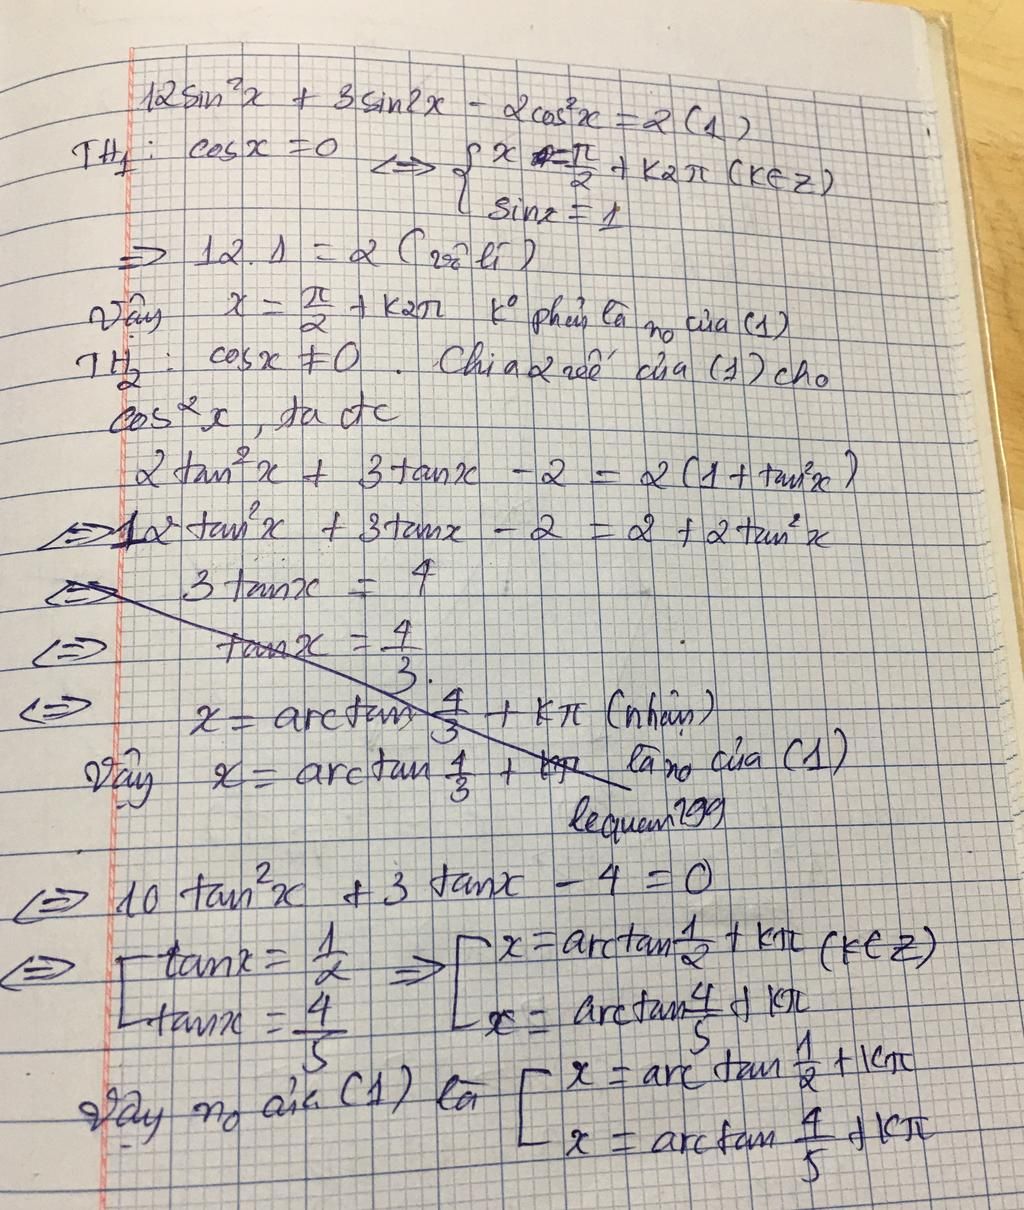 12sin²x + 3sin2x - 2cos²x = 2 (1)
TH₁: cosx = 0 <=> { x = π/2 + k2π (k∈Z)
sinx = 1
=> 12.1 = 2 (vô lí)
Vậy x = π/2 + k2π k° phải là n₀ của (1)
TH₂: cosx ≠ 0. Chia 2 vế của (1) cho
cos²x, ta đc
2tan²x + 3tanx - 2 = 2(1 + tan²x)
<=> 12tan²x + 3tanx - 2 = 2 + 2tan²x
<=> 3tanx = 4
<=> tanx = 4/3.
<=> x = arctan 4/3 + kπ (nhận)
Vậy x = arctan 4/3 + kπ là n₀ của (1)
lequan299
<=> 10tan²x + 3tanx - 4 = 0
<=> [ tanx = 1/2 => [ x = arctan 1/2 + kπ (k∈Z)
tanx = 4/5 x = arctan 4/5 + kπ
Vậy n₀ của (1) là [ x = arctan 1/2 + kπ
x = arctan 4/5 + kπ